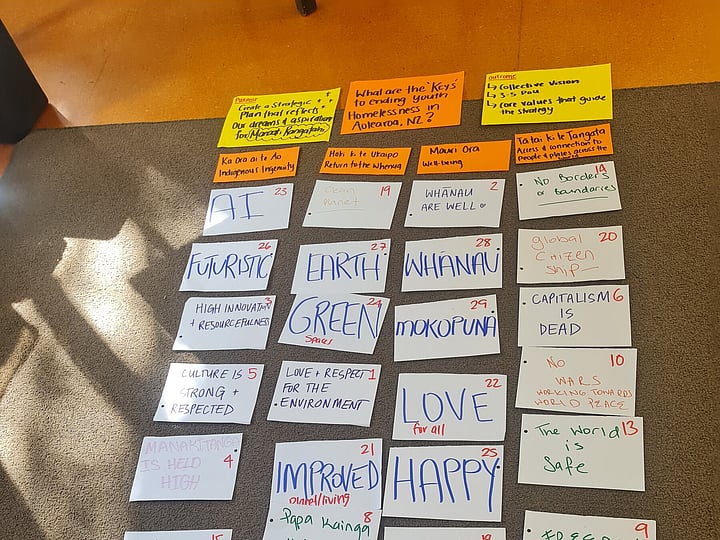 Purpose
Create a Strategic
Plan that reflects
Our dreams & aspirations
for Manaaki Rangatahi
What are the 'Keys'
to ending Youth
Homelessness in
Aotearoa, NZ?
Outcome
↳ Collective Vision
↳ 3-5 Pou
↳ Core values that guide
the strategy
Ka Ora ai te Ao
Indigenous Ingenuity
Hoki ki te Ukaipo
Return to the Whenua
Mauri Ora
Well-being
Tatai ki te Tangata
Access & connection to
people & places across the
23
AI
26
FUTURISTIC
3
HIGH INNOVATION
+ RESOURCEFULNESS
5
CULTURE IS
STRONG +
RESPECTED
4
MANAKITANGA
IS HELD
HIGH
15
19
Clean
Planet
27
EARTH
24
GREEN
Spaces
1
LOVE + RESPECT
FOR THE
ENVIRONMENT
21
IMPROVED
planet/living
Papa Kainga
8
2
WHĀNAU
ARE WELL
28
WHĀNAU
29
MOKOPUNA
22
LOVE
for all
25
HAPPY
18
14
No Borders
or Boundaries
20
global
Citizen
Ship
6
CAPITALISM
IS
DEAD
10
No
WARS
WORKING TOWARDS
WORLD PEACE
13
The World
is
Safe
9